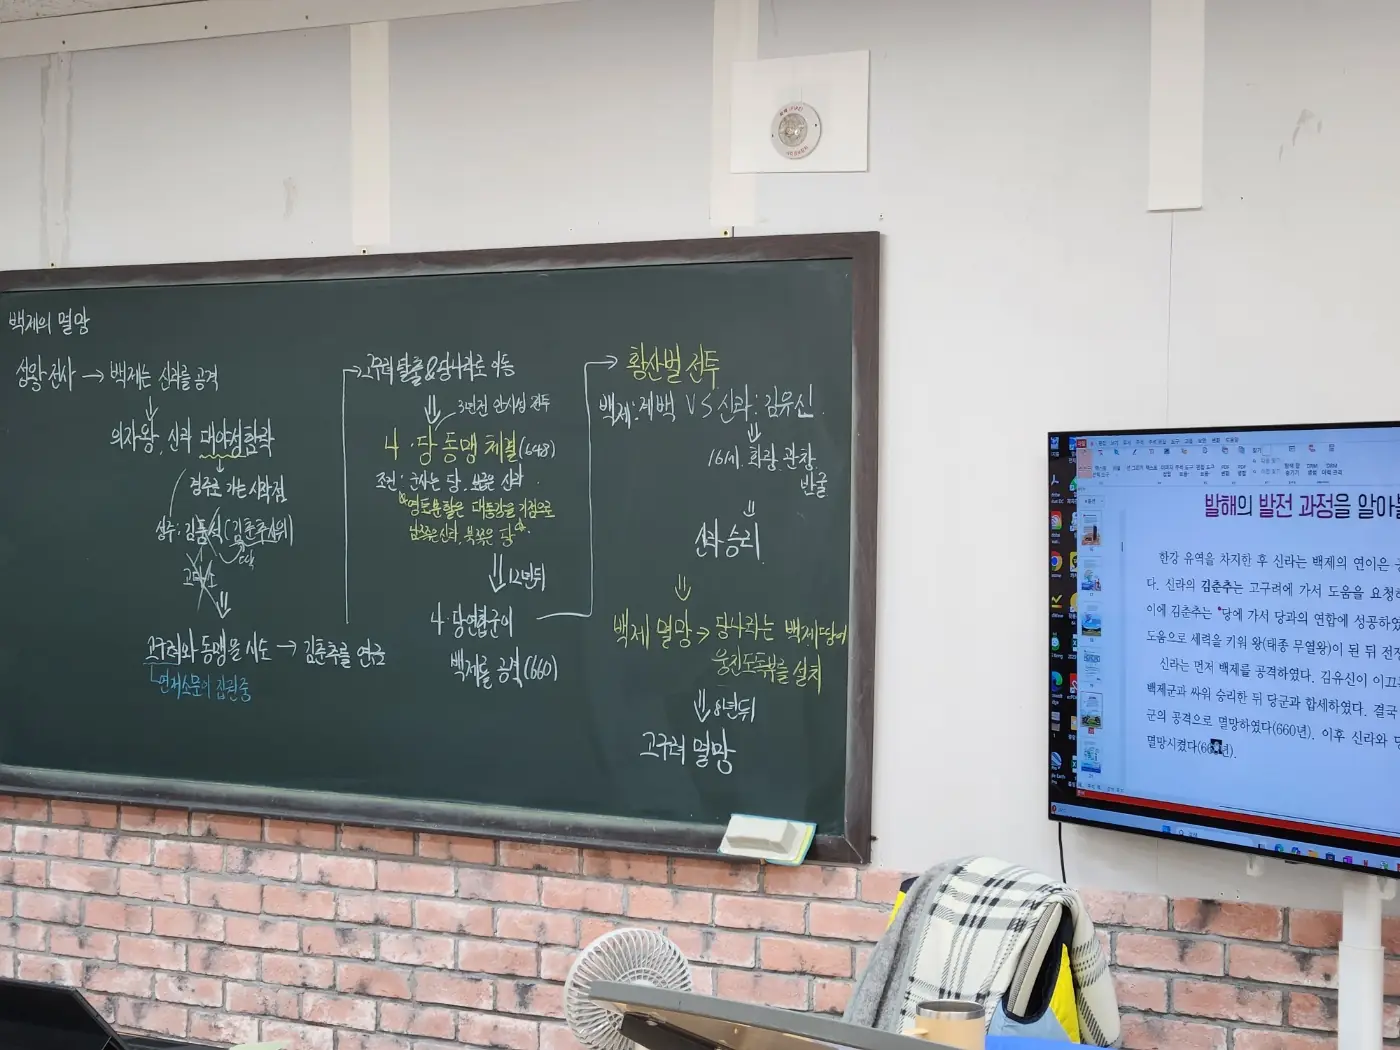 백제의 멸망
성왕 전사 → 백제는 신라를 공격
↓
의자왕, 신라 대야성함락
경주로 가는 시작점
성주: 김품석(김춘추사위)
고타소
⇓
고구려와 동맹을 시도 → 김춘추를 연금
연개소문이 집권중
고구려 탈출&당나라로 이동
⇓ 3년전 안시성 전투
나·당 동맹 체결(648)
조건: 군사는 당, 보급은 신라
영토분할은 대동강을 기점으로
남쪽은 신라, 북쪽은 당
⇓ 12년뒤
나·당연합군이
백제를 공격(660)
황산벌 전투
백제:계백 VS 신라:김유신
⇓
16세 화랑 관창
반굴
⇓
신라 승리
⇓
백제 멸망 → 당나라는 백제땅에
웅진도독부를 설치
⇓ 8년뒤
고구려 멸망
발해의 발전 과정을 알아
한강 유역을 차지한 후 신라는 백제의 연이은
다. 신라의 김춘추는 고구려에 가서 도움을 요청
이에 김춘추는 당에 가서 당과의 연합에 성공하였
도움으로 세력을 키워 왕(태종 무열왕)이 된 뒤 전
신라는 먼저 백제를 공격하였다. 김유신이 이끄
백제군과 싸워 승리한 뒤 당군과 합세하였다. 결국
군의 공격으로 멸망하였다(660년). 이후 신라와
멸망시켰다(66 년).